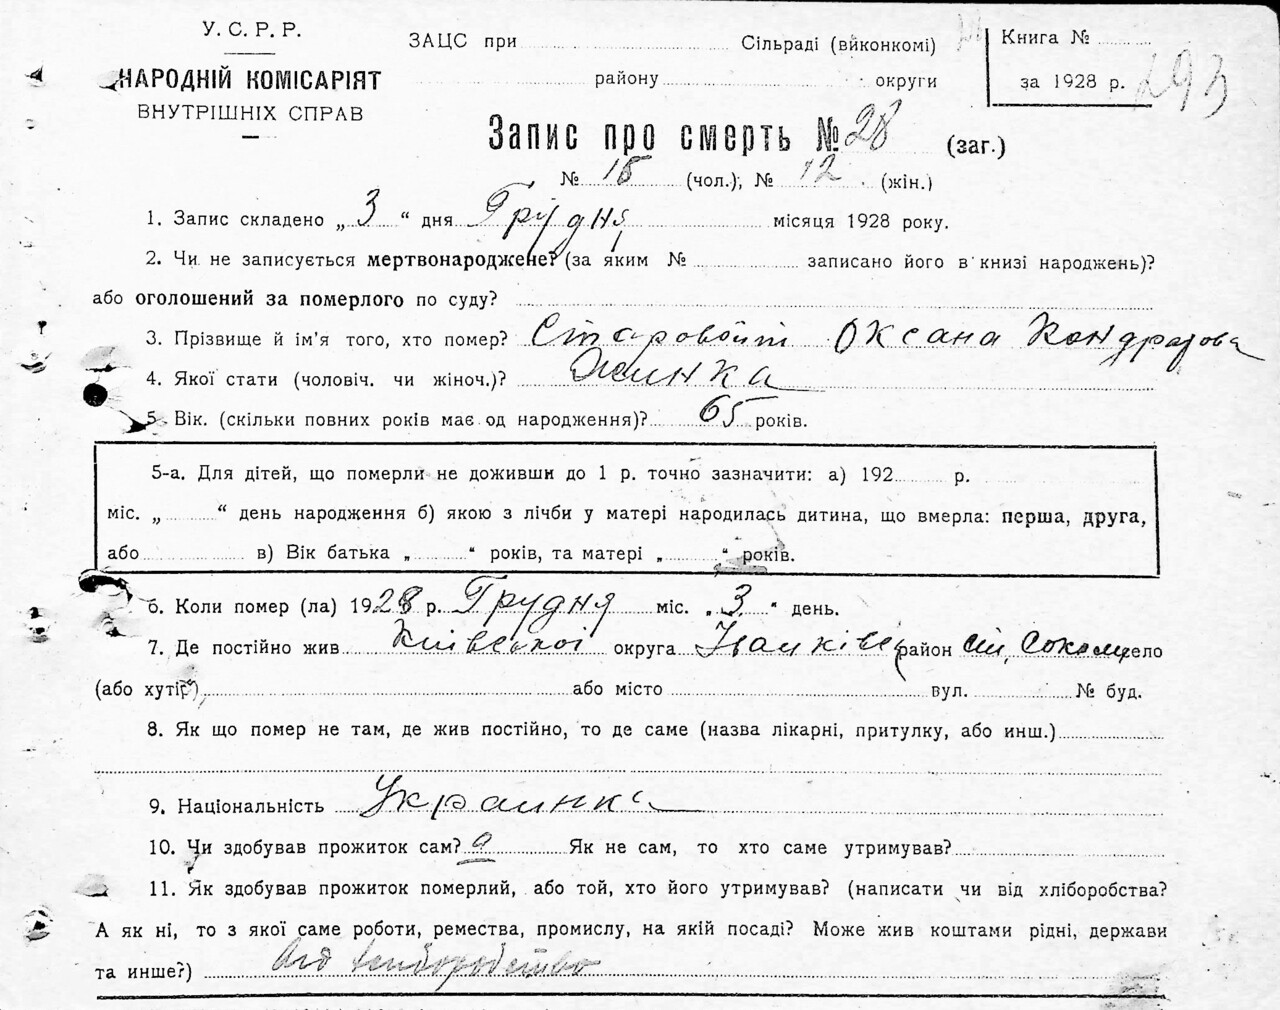 У. С. Р. Р.
НАРОДНІЙ КОМІСАРІЯТ
ВНУТРІШНІХ СПРАВ
ЗАЦС при Сільраді (виконкомі)
району округи
Книга №
за 1928 р. 293
Запис про смерть № 28 (заг.)
№ 15 (чол.); № 12 (жін.)
1. Запис складено „ 3 “ дня Грудня місяця 1928 року.
2. Чи не записується мертвонароджене? (за яким № записано його в книзі народжень)?
або оголошений за померлого по суду?
3. Прізвище й ім'я того, хто помер? Старовойт Оксана Кондратова
4. Якої стати (чоловіч. чи жіноч.)? Жинка
5. Вік. (скільки повних років має од народження)? 65 років.
5-а. Для дітей, що померли не доживши до 1 р. точно зазначити: а) 192 р.
міс. „ “ день народження б) якою з лічби у матері народилась дитина, що вмерла: перша, друга,
або в) Вік батька „ “ років, та матері „ “ років.
6. Коли помер (ла) 1928 р. Грудня міс. „ 3 “ день.
7. Де постійно жив Київської округа Іванківс район село
(або хутір) або місто вул. № буд.
8. Як що помер не там, де жив постійно, то де саме (назва лікарні, притулку, або инш.)
9. Національність Украинка
10. Чи здобував прожиток сам? Як не сам, то хто саме утримував?
11. Як здобував прожиток померлий, або той, хто його утримував? (написати чи від хліборобства?
А як ні, то з якої саме роботи, ремества, промислу, на якій посаді? Може жив коштами рідні, держави
та инше?)